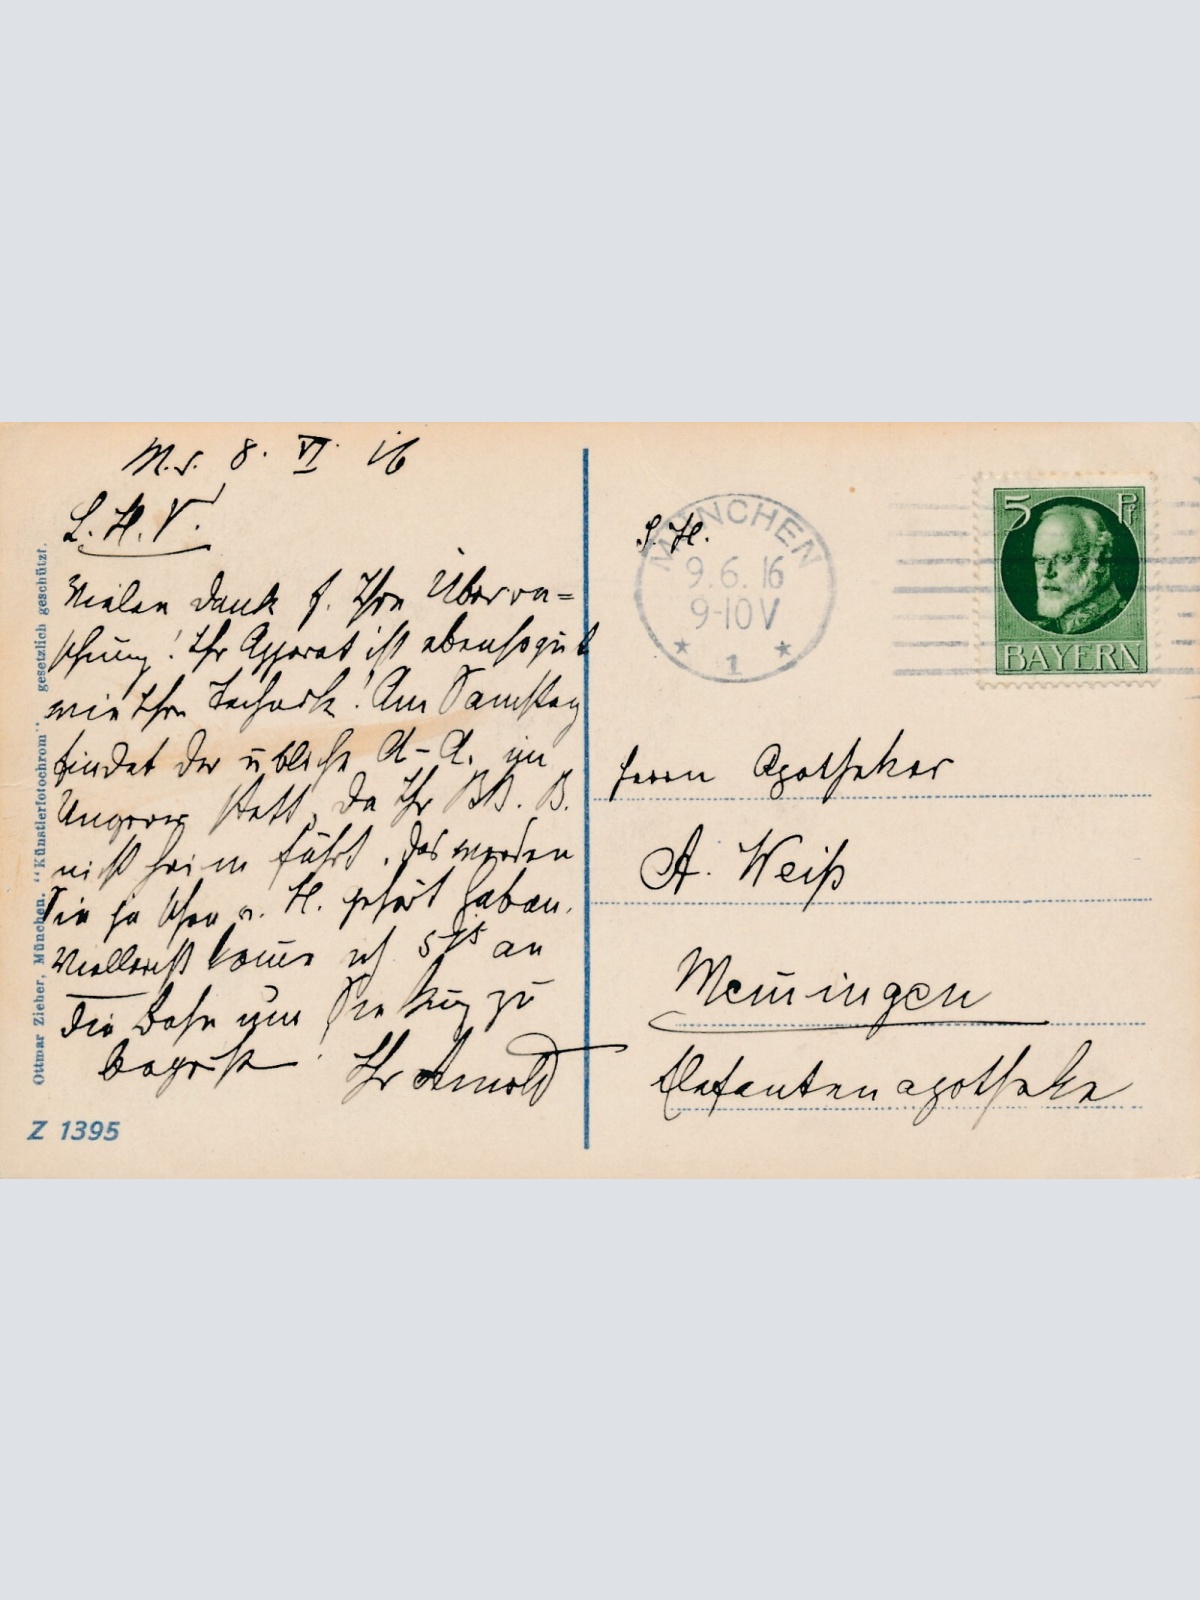 M. d. 8. VI. 16
L. H. V.
Vielen Dank f. Ihre Überra=
schung! Ihr Apparat ist ebensogut
wie Ihre Technik! Am Samstag
findet der übliche A-A. im
Ungerer statt, da Ihr BB. B.
nicht heim fährt. Das werden
Sie ja schon v. H. gehört haben.
Vielleicht komme ich 5 an
die Bahn um Sie kurz zu
begrüßen. Ihr Arnold
Z 1395
Ottmar Zieher, München. "Künstlerfotochrom" gesetzlich geschützt.
S. H.
MÜNCHEN
9.6.16
9-10 V
1
5 Pf
BAYERN
Herrn Apotheker
A. Weiß
Memmingen
Elefantenapotheke